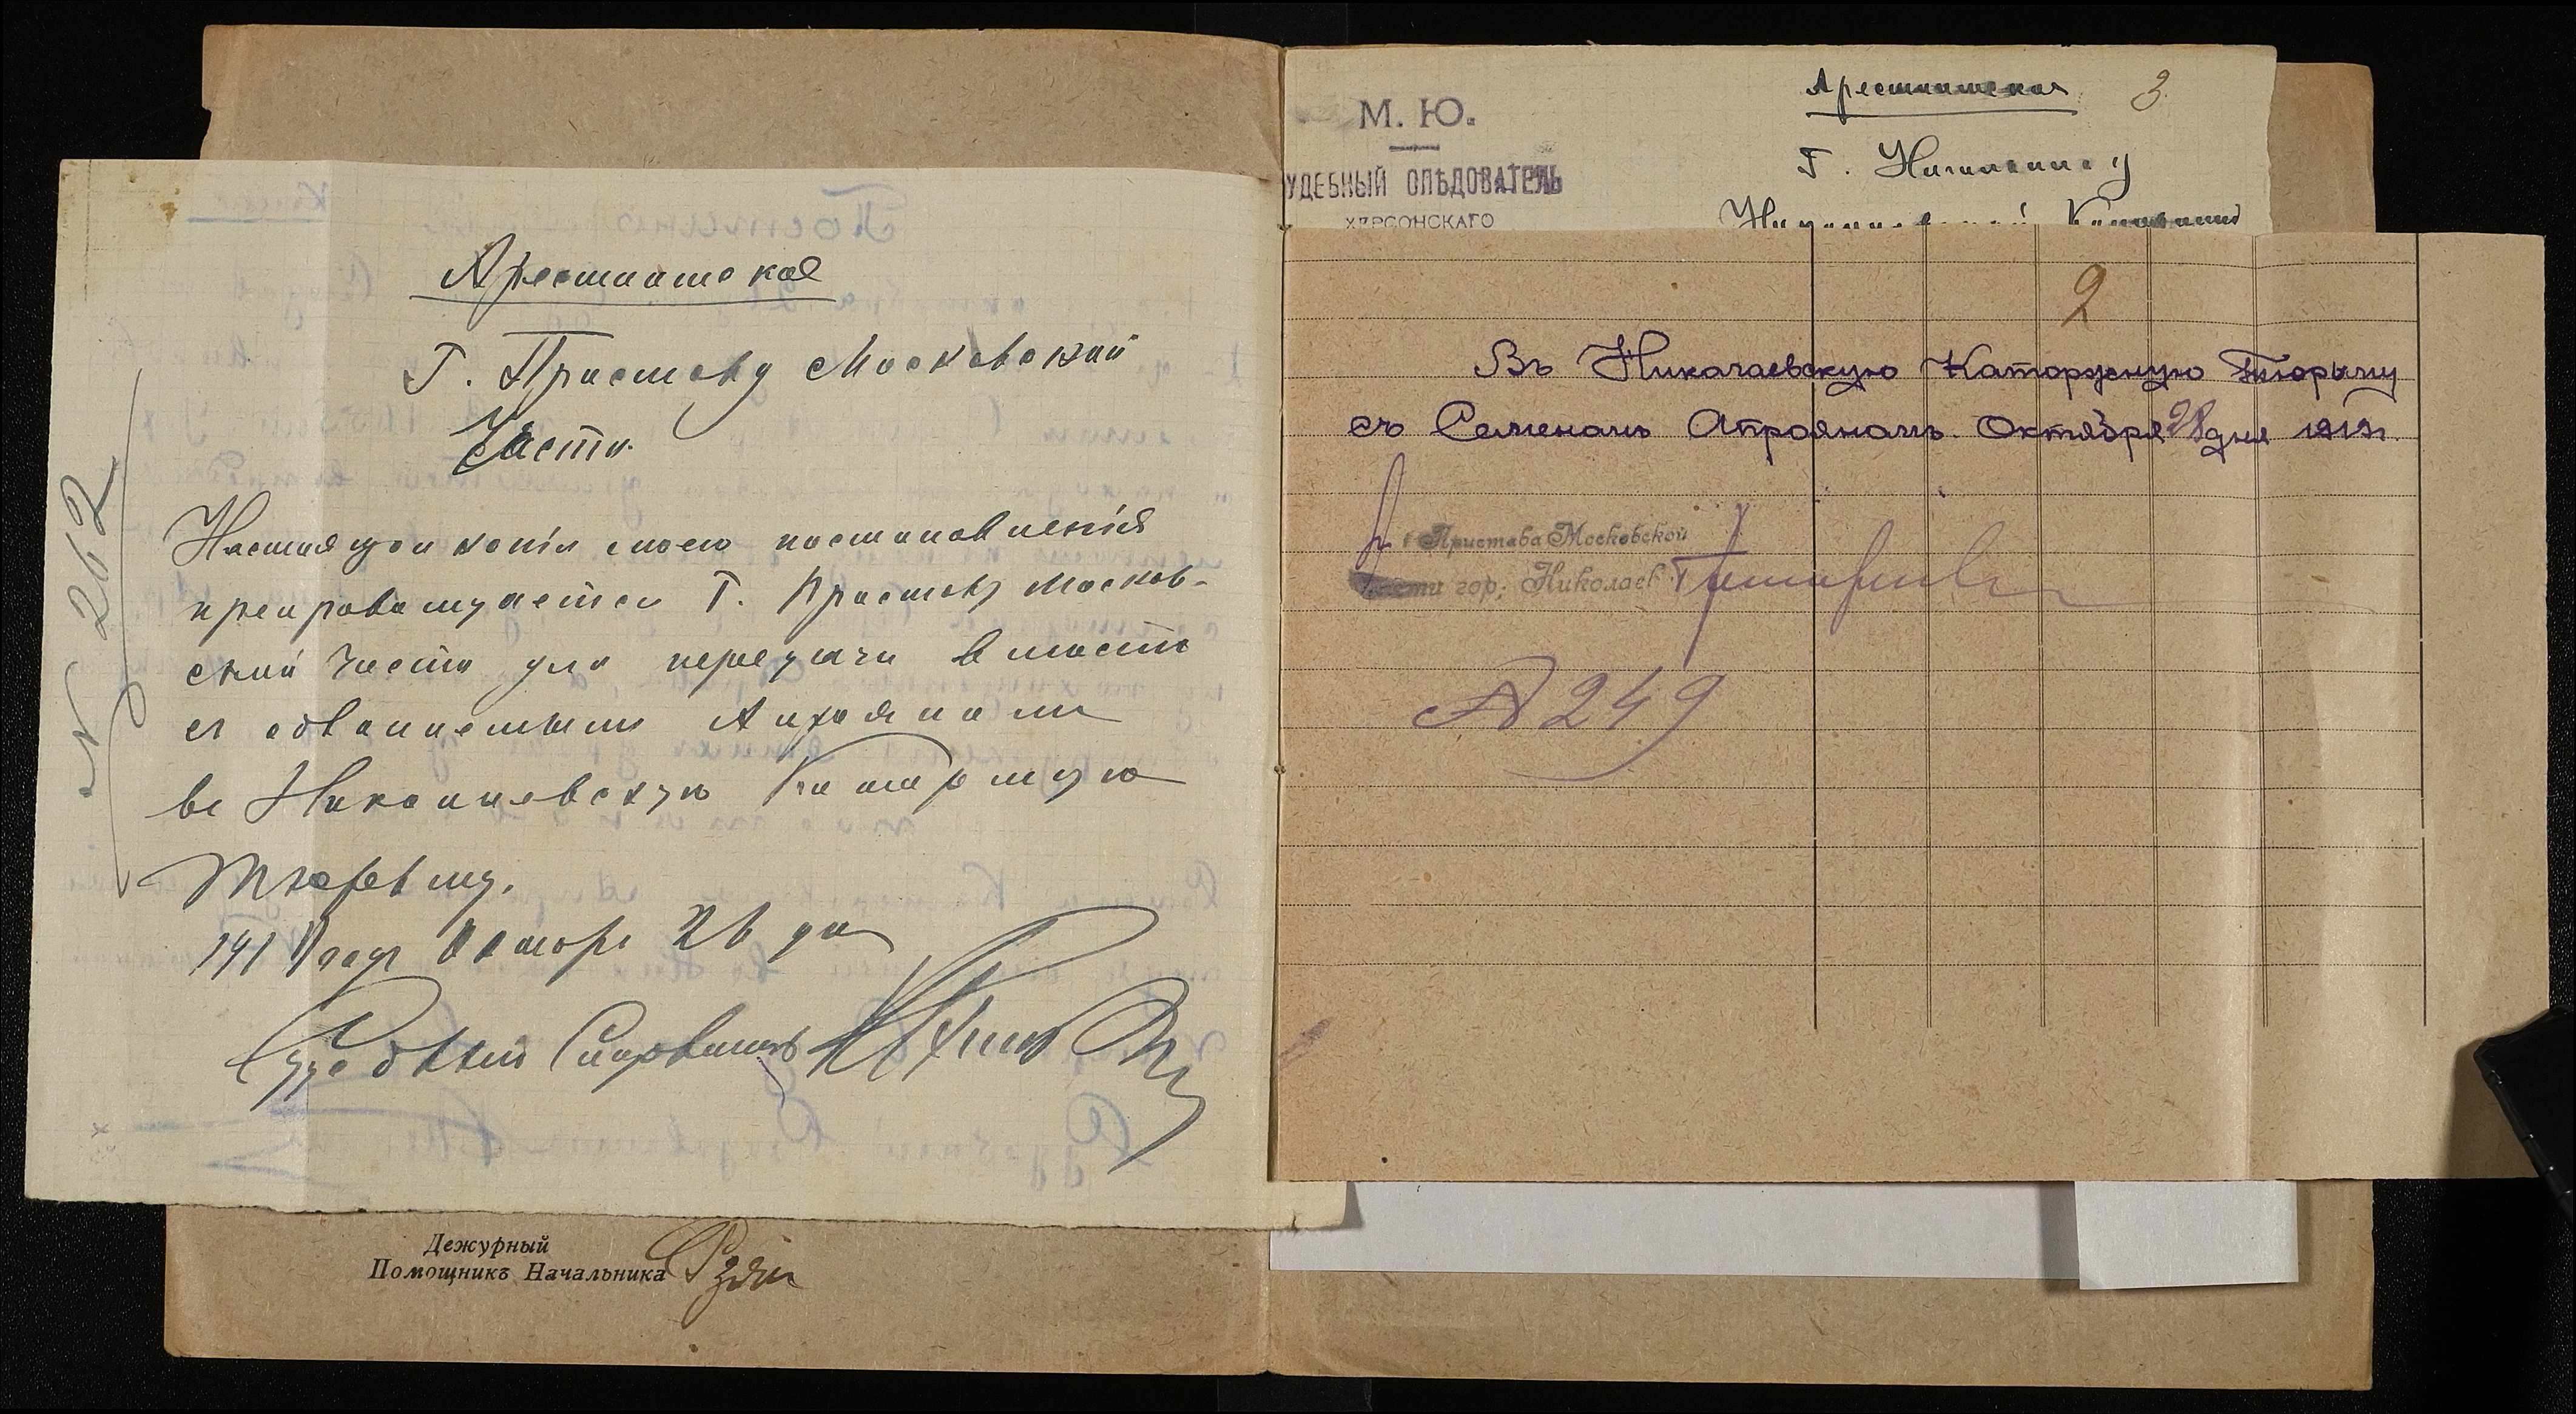 Арестантское
Г. Приставу Московской
Части.
№ 262
Настоящая копія моего постановленія
препровождается Г. Приставу Москов-
ской части для передачи вместе
съ обвиняемымъ Апрояномъ
въ Николаевскую Каторжную
тюрьму.
Октября 26 дня
Судебный Следователь
Дежурный
Помощникъ Начальника
М. Ю.
УДЕБНЫЙ СЛѢДОВАТЕЛЬ
ХЕРСОНСКАГО
Арестантская 3
Г. Начальнику
2
Въ Николаевскую Каторжную Тюрьму
съ Семеномъ Апрояномъ. Октября 28 дня 1919 г.
Пристава Московской
части гор. Николаев
№ 249